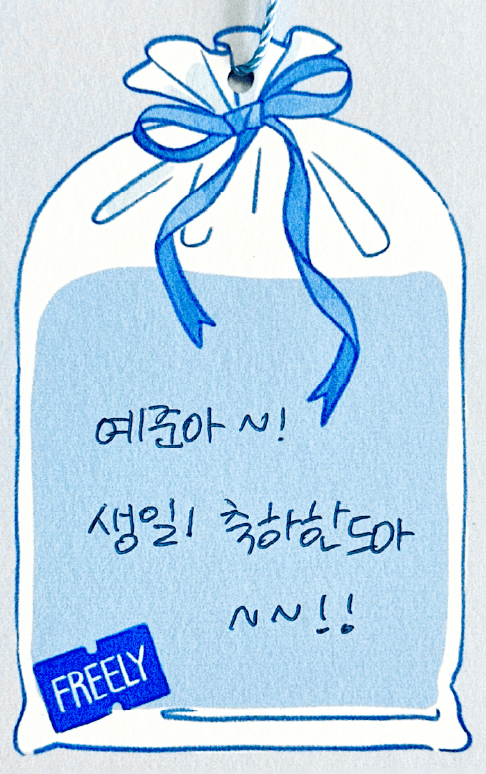 예준아 ~!
생일! 축하한도아
~~!!
FREELY